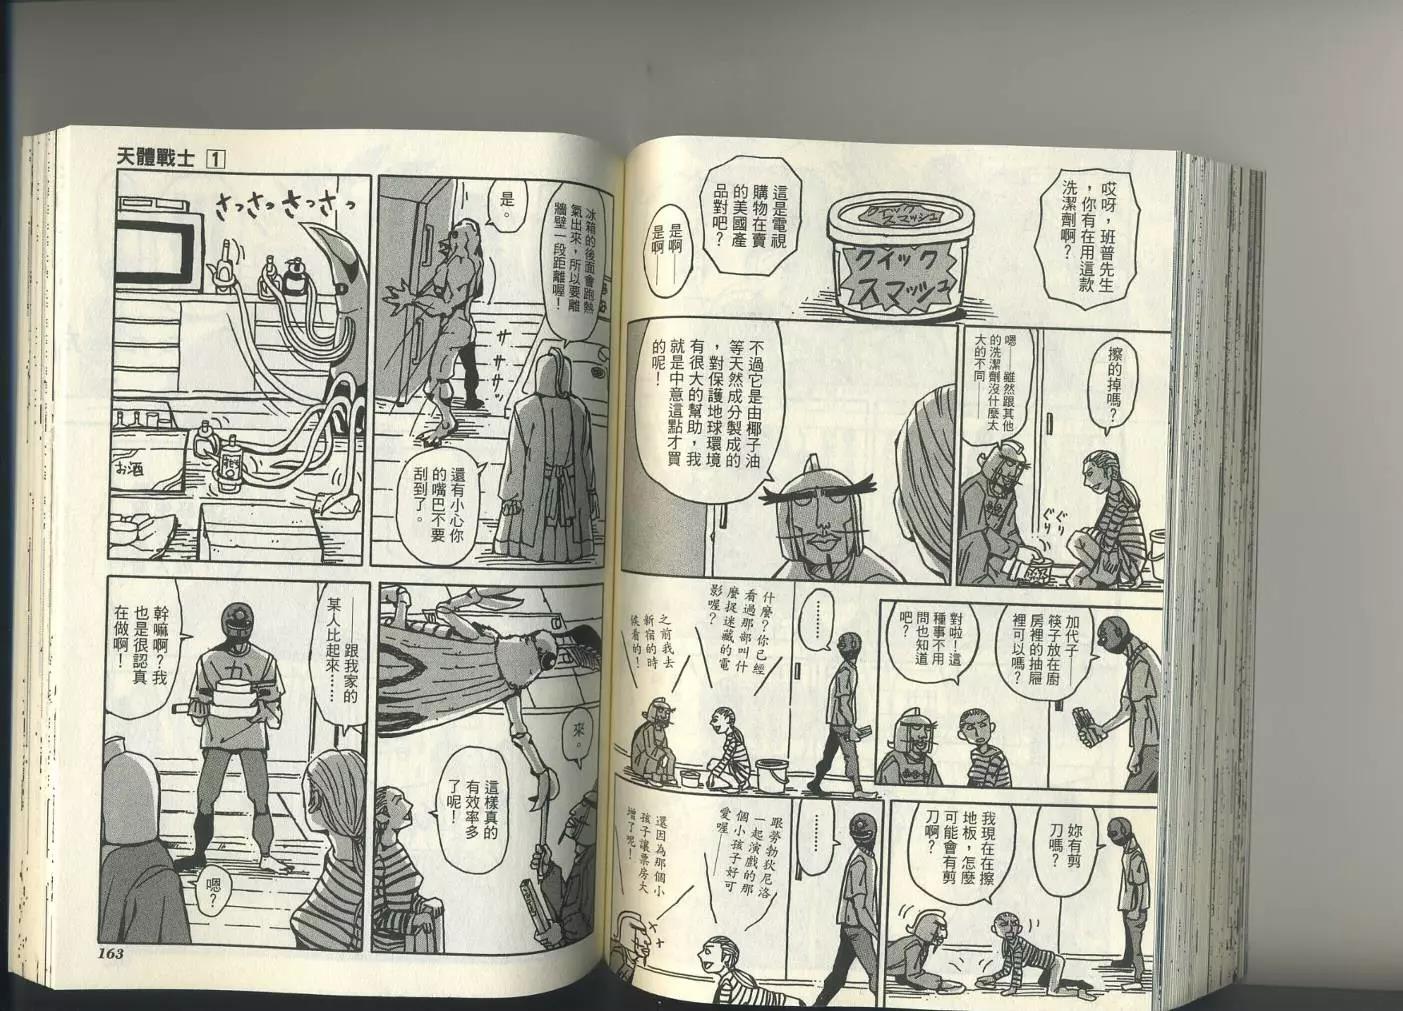 哎呀，班普先生
，你有在用這款
洗潔劑啊？
クイック
スマッシュ
クイック
スマッシュ
這是電視
購物在賣
的美國產
品對吧？
是啊——
是啊——
擦的掉嗎？
嗯——雖然跟其他
的洗潔劑沒什麼太
大的不同——
ぐり
ぐり
不過它是由椰子油
等天然成分製成的
，對保護地球環境
有很大的幫助，我
就是中意這點才買
的呢！
加代子——
筷子放在廚
房裡的抽屜
裡可以嗎？
對啦！這
種事不用
問也知道
吧？
………
什麼？你已經
看過那部叫什
麼捉迷藏的電
影喔？
之前我去
新宿的時
候看的！
妳有剪
刀嗎？
我現在在擦
地板，怎麼
可能會有剪
刀啊？
………
跟勞勃狄尼洛
一起演戲的那
個小孩子好可
愛喔——
還因為那個小
孩子讓票房大
增了呢！
天體戰士 1
冰箱的後面會跑熱
氣出來，所以要離
牆壁一段距離喔！
是。
ササササッ
還有小心你
的嘴巴不要
刮到了。
さっさっさっさっ
お酒
來。
這樣真的
有效率多
了呢！
——跟我家的
某人比起來……
幹嘛啊？我
也是很認真
在做啊！
嗯？
163